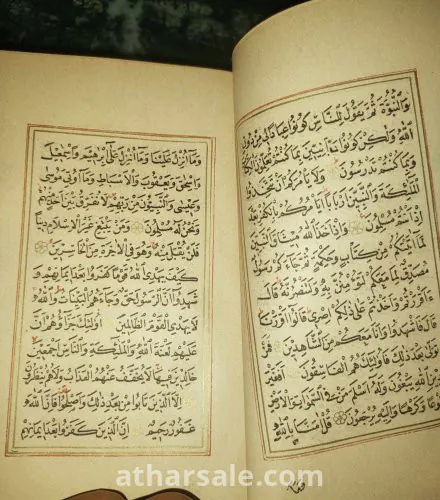 وَالنُّبُوَّةَ ثُمَّ يَقُولَ لِلنَّاسِ كُونُوا عِبَادًا لِي مِنْ دُونِ
اللَّهِ وَلَكِنْ كُونُوا رَبَّانِيِّينَ بِمَا كُنْتُمْ تُعَلِّمُونَ الْكِتَابَ
وَبِمَا كُنْتُمْ تَدْرُسُونَ وَلَا يَأْمُرَكُمْ أَنْ تَتَّخِذُوا
الْمَلٰئِكَةَ وَالنَّبِيِّينَ أَرْبَابًا أَيَأْمُرُكُمْ بِالْكُفْرِ بَعْدَ
إِذْ أَنْتُمْ مُسْلِمُونَ وَإِذْ أَخَذَ اللَّهُ مِيثَاقَ النَّبِيِّينَ
لَمَا آتَيْتُكُمْ مِنْ كِتَابٍ وَحِكْمَةٍ ثُمَّ جَاءَكُمْ رَسُولٌ
مُصَدِّقٌ لِمَا مَعَكُمْ لَتُؤْمِنُنَّ بِهِ وَلَتَنْصُرُنَّهُ قَالَ
ءَأَقْرَرْتُمْ وَأَخَذْتُمْ عَلَى ذَلِكُمْ إِصْرِي قَالُوا أَقْرَرْنَا
قَالَ فَاشْهَدُوا وَأَنَا مَعَكُمْ مِنَ الشَّاهِدِينَ فَمَنْ
تَوَلَّى بَعْدَ ذَلِكَ فَأُولَئِكَ هُمُ الْفَاسِقُونَ أَفَغَيْرَ
دِينِ اللَّهِ يَبْغُونَ وَلَهُ أَسْلَمَ مَنْ فِي السَّمٰوَاتِ وَالْأَرْضِ
طَوْعًا وَكَرْهًا وَإِلَيْهِ يُرْجَعُونَ قُلْ آمَنَّا بِاللَّهِ
وَمَا
وَمَا أُنْزِلَ عَلَيْنَا وَمَا أُنْزِلَ عَلَى إِبْرٰهِيمَ وَإِسْمٰعِيلَ
وَإِسْحٰقَ وَيَعْقُوبَ وَالْأَسْبَاطِ وَمَا أُوتِيَ مُوسَى
وَعِيسَى وَالنَّبِيُّونَ مِنْ رَبِّهِمْ لَا نُفَرِّقُ بَيْنَ أَحَدٍ مِنْهُمْ
وَنَحْنُ لَهُ مُسْلِمُونَ وَمَنْ يَبْتَغِ غَيْرَ الْإِسْلَامِ دِينًا
فَلَنْ يُقْبَلَ مِنْهُ وَهُوَ فِي الْآخِرَةِ مِنَ الْخَاسِرِينَ
كَيْفَ يَهْدِي اللَّهُ قَوْمًا كَفَرُوا بَعْدَ إِيمَانِهِمْ وَ
شَهِدُوا أَنَّ الرَّسُولَ حَقٌّ وَجَاءَهُمُ الْبَيِّنَاتُ وَاللَّهُ
لَا يَهْدِي الْقَوْمَ الظَّالِمِينَ أُولَئِكَ جَزَاؤُهُمْ أَنَّ
عَلَيْهِمْ لَعْنَةَ اللَّهِ وَالْمَلٰئِكَةِ وَالنَّاسِ أَجْمَعِينَ
خَالِدِينَ فِيهَا لَا يُخَفَّفُ عَنْهُمُ الْعَذَابُ وَلَا هُمْ يُنْظَرُونَ
إِلَّا الَّذِينَ تَابُوا مِنْ بَعْدِ ذَلِكَ وَأَصْلَحُوا فَإِنَّ اللَّهَ
غَفُورٌ رَحِيمٌ إِنَّ الَّذِينَ كَفَرُوا بَعْدَ إِيمَانِهِمْ
atharsale.com